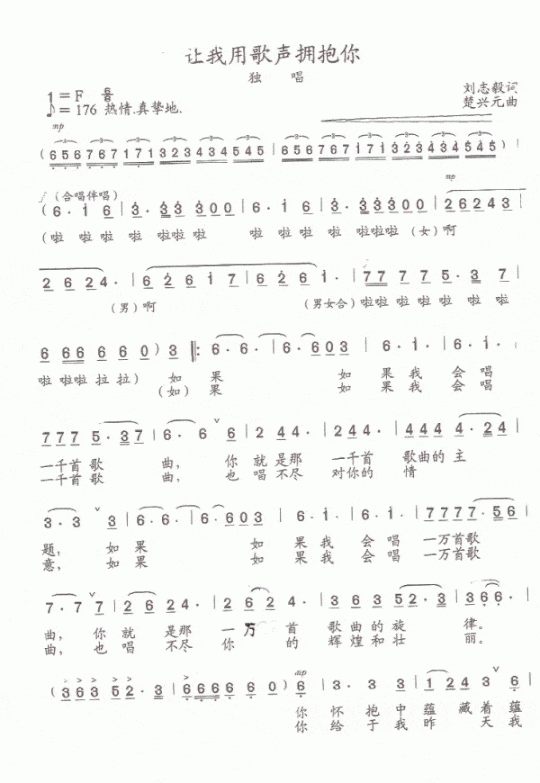 让我用歌声拥抱你
独 唱
1= F
♪= 176 热情.真挚地.
刘志毅词
楚兴元曲
mp
(656 767 171 323 434 545 | 656 767 171 323 434 545)
f (合唱伴唱)
mp
(6· i 6 | 3· 33 300 | 6· i 6 | 3· 33300 | 26243 |
(啦 啦啦 啦 啦啦啦 啦 啦 啦 啦啦啦啦 (女)啊
2 6 24· | 6 2 6 1 7 | 6 2 6 | 1· | 77 7 7 5· 3 7 |
(男)啊 (男女合)啦啦啦 啦 啦 啦 啦
6 66 6 6 0) 3 ‖: 6· 6· | 6· 603 | 6· i· | 6· i· |
啦 啦啦 拉 拉) 如 果 如 果 我 会 唱
(如) 果 如 果 我 会 唱
777 5· 37 | 6· 6 6 | 2 44· | 2 44· | 444 4· 24 |
一千首 歌 曲, 你 就 是那 一千首 歌曲的 主
一千首 歌 曲, 也 唱 不尽 对你的 情
3· 3 3 | 6· 6· | 6· 603 | 6· i· | 6· i· | 7777· 56 |
题, 如 果 如 果 我 会 唱 一万首歌
意, 如 果 如 果 我 会 唱 一万首歌
7· 7 7 | 2 6 24· | 2 6 2 4· | 3 6 3 52· 3 | 3 6 6· |
曲, 你 就 是那 一 万 首 歌 曲 的 旋 律。
曲, 也 唱 不尽 你 的 辉 煌 和 壮 丽。
(3 6 3 52· 3 | 6 6 6 6 6 0) 6 | 3· 3 3 | 1 24 3 6 |
mp
你 怀 抱 中 蕴 藏 着 蕴
你 给 于 我 昨 天 我